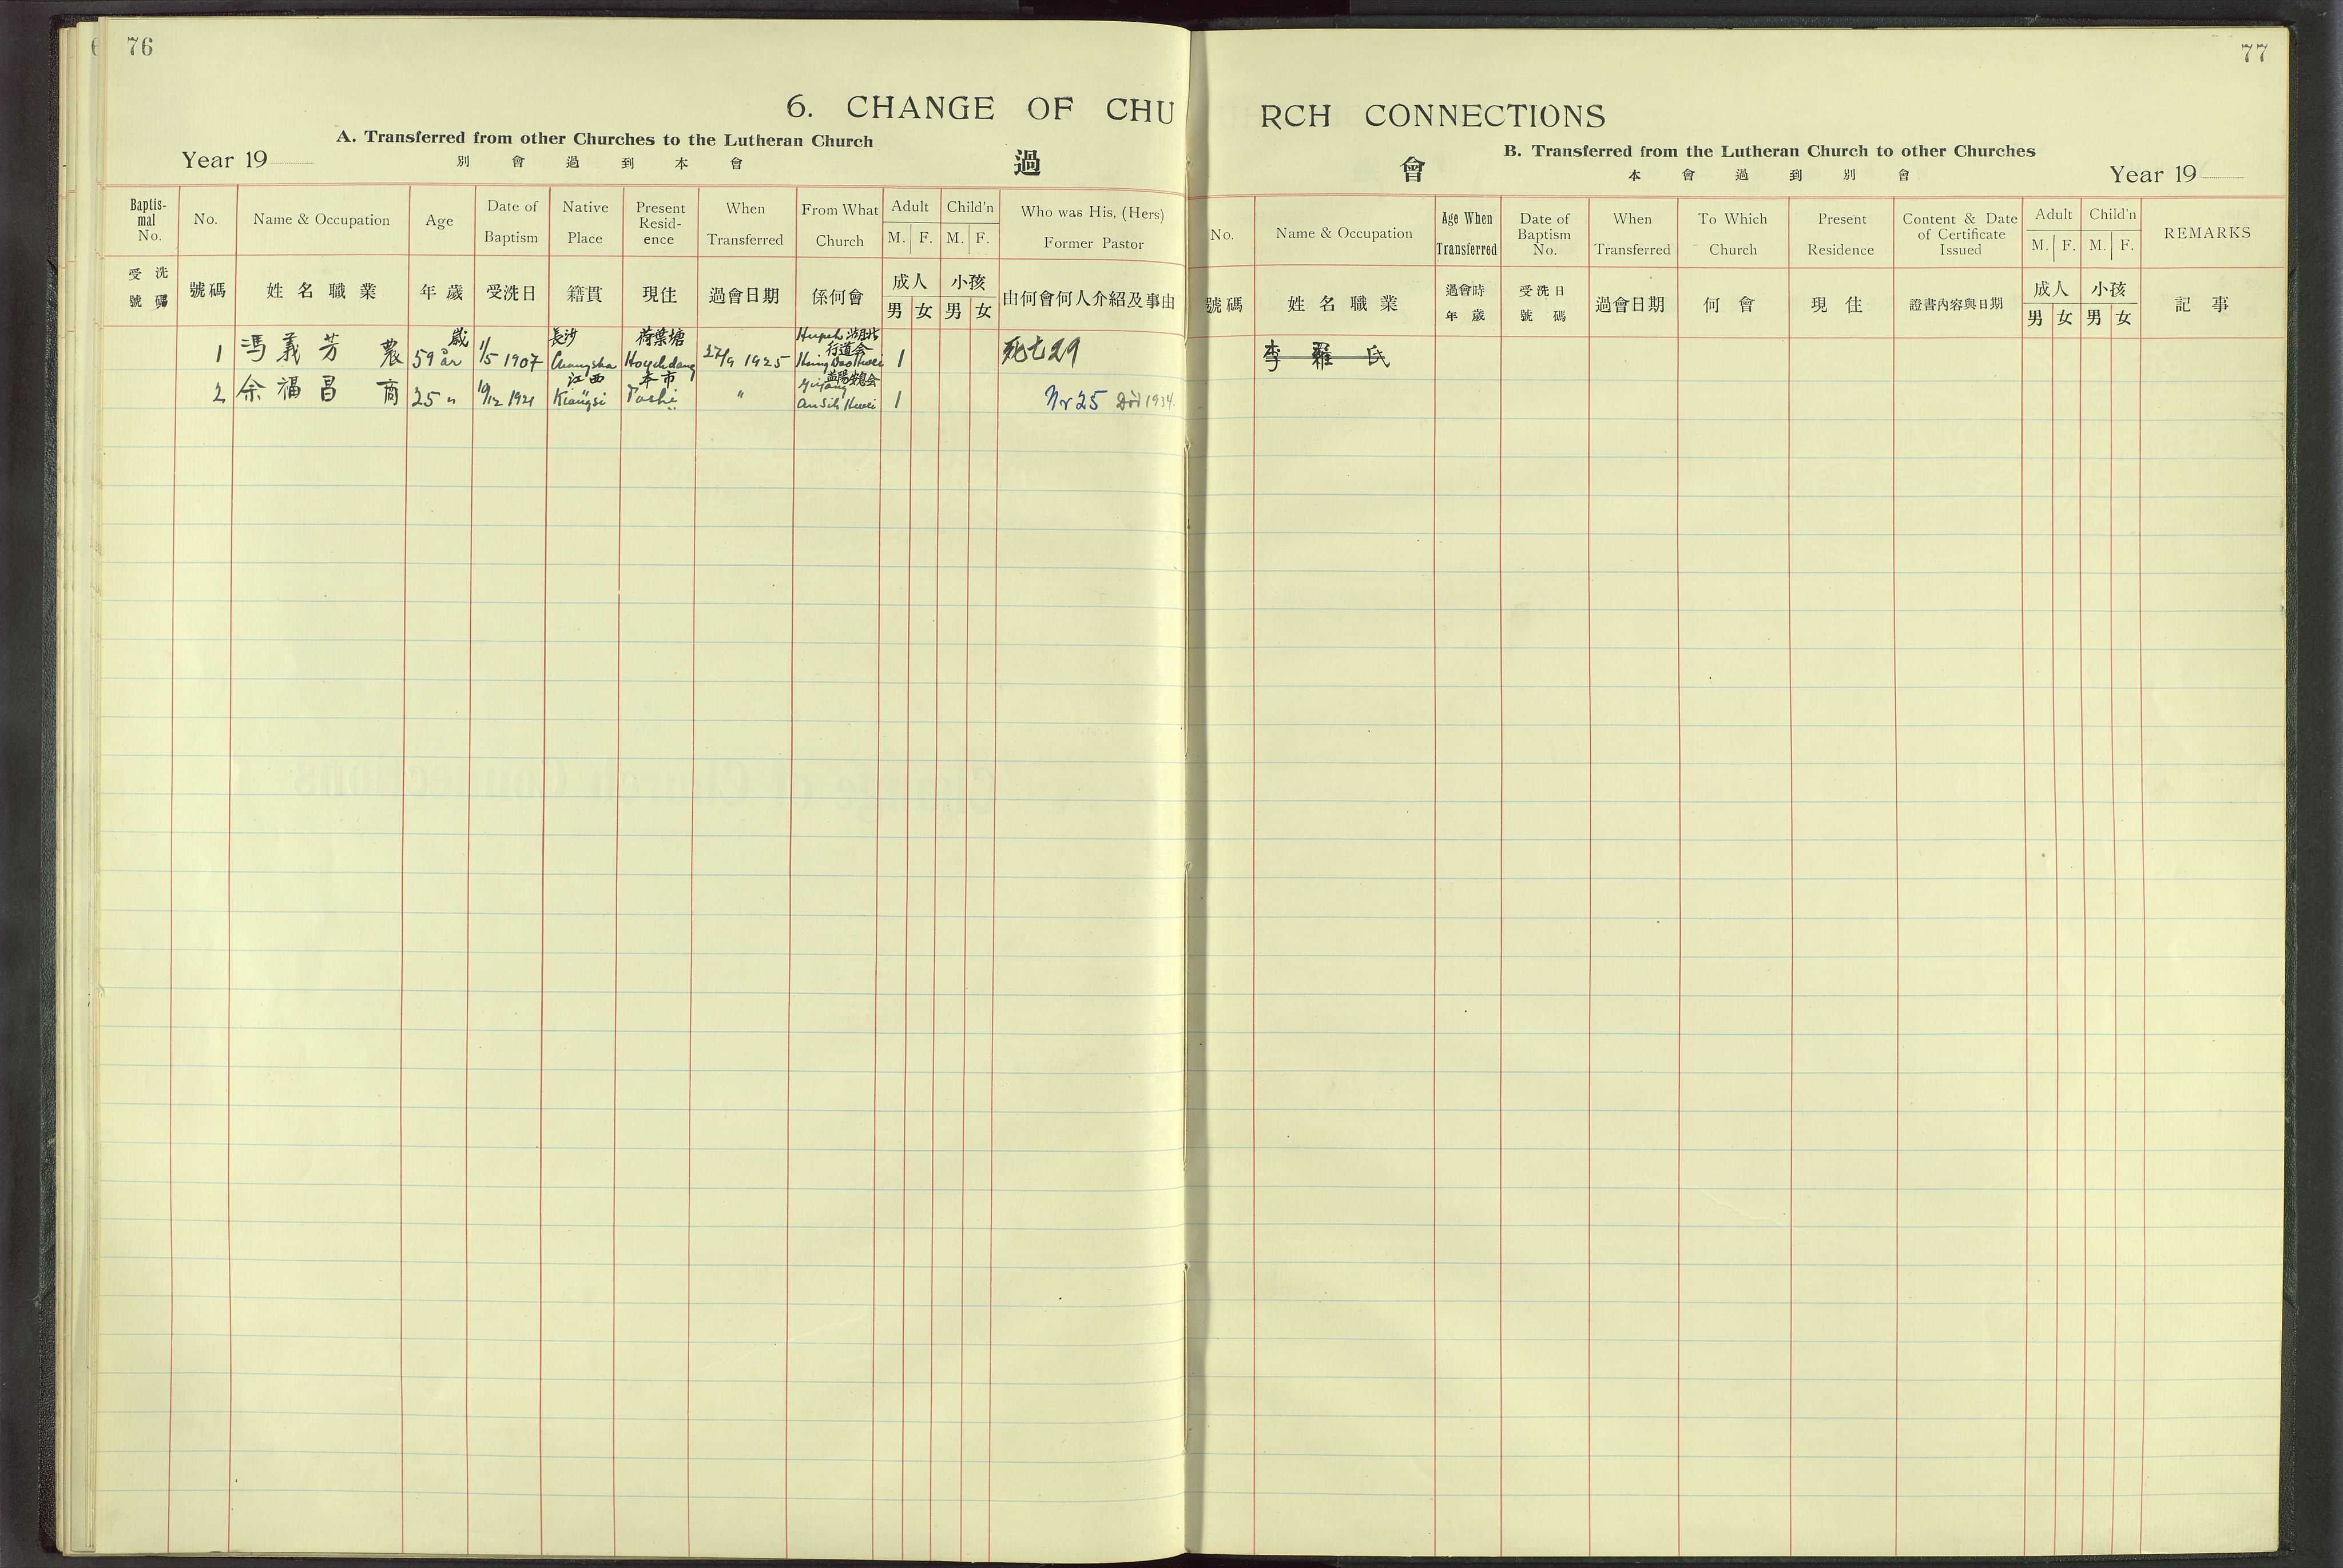 76
6. CHANGE OF CHU
A. Transferred from other Churches to the Lutheran Church
Year 19
別會過到本會
過
Baptismal No. No. Name & Occupation Age Date of Baptism Native Place Present Residence When Transferred From What Church Adult M. F. Child'n M. F. Who was His, (Hers) Former Pastor
受洗號碼 號碼 姓名職業 年歲 受洗日 籍貫 現住 過會日期 係何會 成人 男 女 小孩 男 女 由何會何人介紹及事由
歲 長沙 荷葉塘 Hupeh 湖北 行道会
1 馮義芳 農 59 år 1/5 1907 Changsha 27/9 1925 1 死亡29
江西 本市 益陽
2 余福昌 商 25 " 1921 Kiangsi " 1 Nr 25 Död 1934.
77
RCH CONNECTIONS
B. Transferred from the Lutheran Church to other Churches
會
本會過到別會
Year 19
No. Name & Occupation Age When Transferred Date of Baptism No. When Transferred To Which Church Present Residence Content & Date of Certificate Issued Adult M. F. Child'n M. F. REMARKS
號碼 姓名職業 過會時年歲 受洗日號碼 過會日期 何會 現住 證書內容與日期 成人 男 女 小孩 男 女 記事
李羅氏